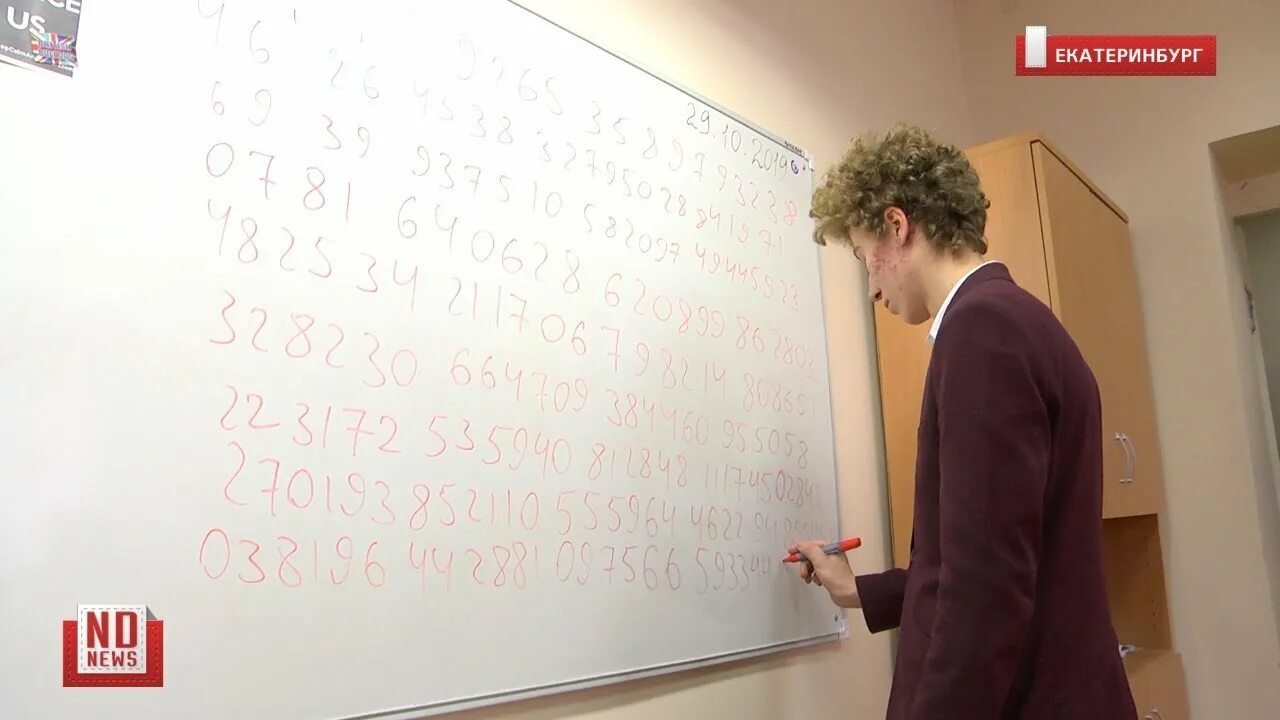 US
ЕКАТЕРИНБУРГ
29.10.2019
9265 35897 93238
46 26 4338 32795028 841971
69 39 937510 582097 49445923
0781 640628 620899 862803
4825 34 2117 067 98214 808651
328230 664709 384460 955058
223172 535940 812848 1117450284
270193 852110 555964 4622 94
038196 442881 097566 593344
ND
NEWS